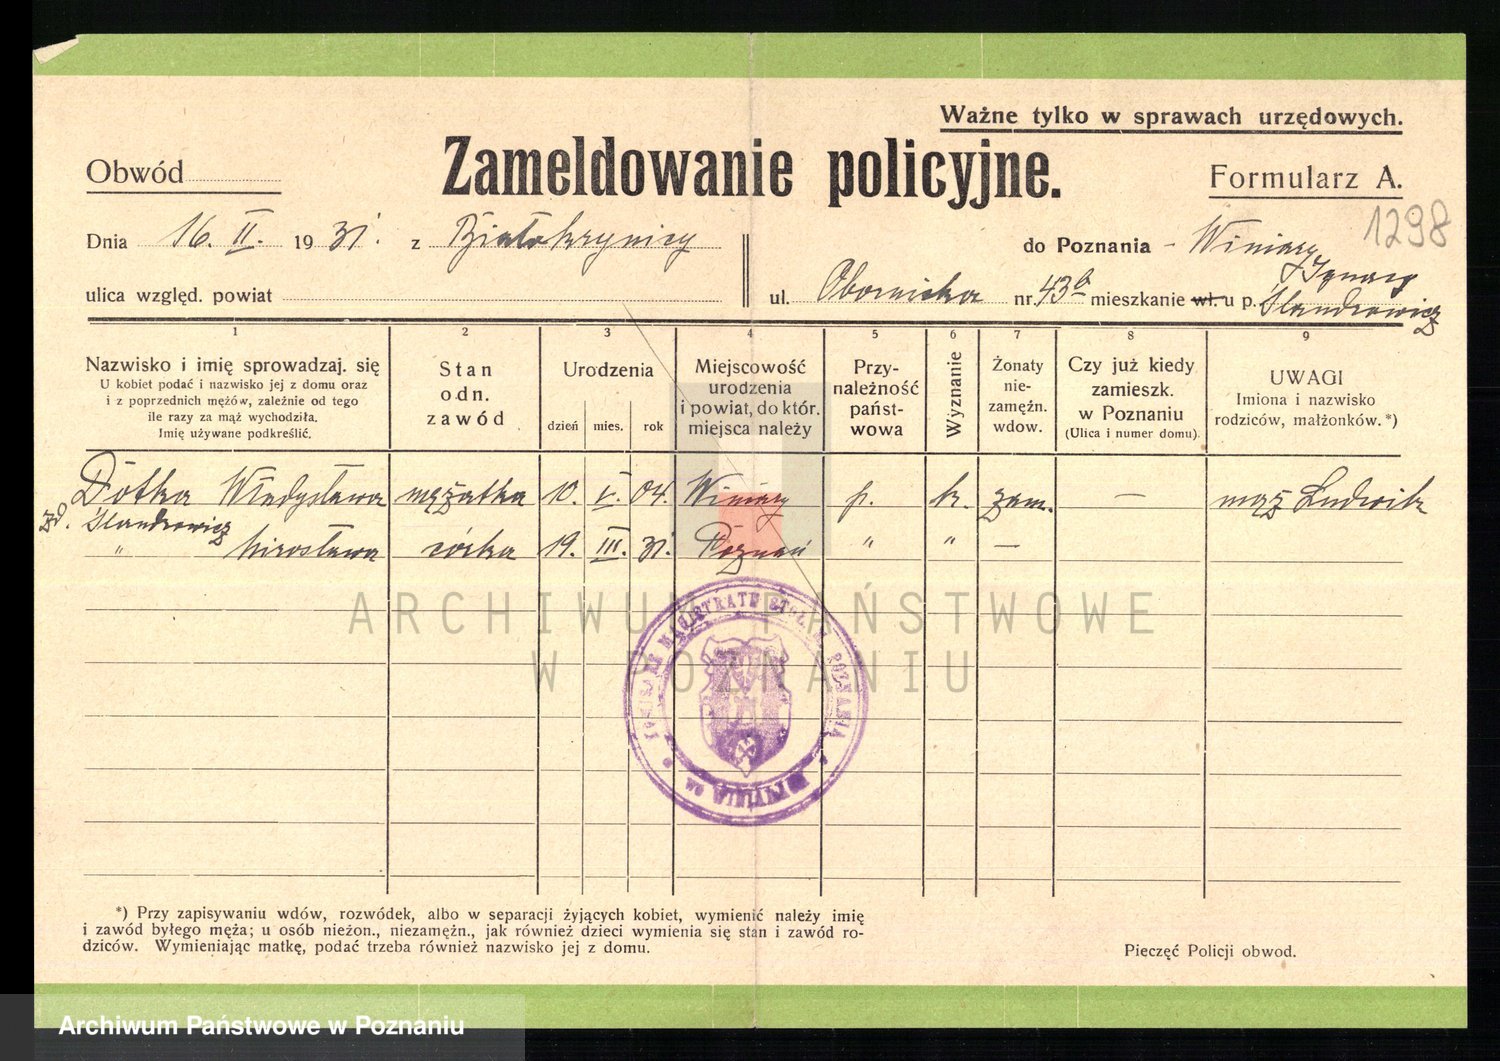 Ważne tylko w sprawach urzędowych.
Obwód
Zameldowanie policyjne.
Formularz A.
1298
Dnia 16. II. 1931. z Białokrynicy
do Poznania - Winiary
ulica względ. powiat
ul. Obornicka nr. 43a mieszkanie wł. u p. Ignacy
1 2 3 4 5 6 7 8 9
Nazwisko i imię sprowadzaj. się
U kobiet podać i nazwisko jej z domu oraz
i z poprzednich mężów, zależnie od tego
ile razy za mąż wychodziła.
Imię używane podkreślić.
Stan
odn.
zawód
Urodzenia
dzień mies. rok
Miejscowość
urodzenia
i powiat, do któr.
miejsca należy
Przy-
należność
państ-
wowa
Wyznanie
Żonaty
nie-
zamężn.
wdow.
Czy już kiedy
zamieszk.
w Poznaniu
(Ulica i numer domu).
UWAGI
Imiona i nazwisko
rodziców, małżonków.*)
Władysława mężatka 10. V. 04. Winiary p. k. zam. — mąż Ludwik
zd.
" Mirosława córka 19. III. 31. Poznań " " —
ARCHIWUM PAŃSTWOWE
W POZNANIU
MAGISTRATU STOŁ. M. POZNANIA
*) Przy zapisywaniu wdów, rozwódek, albo w separacji żyjących kobiet, wymienić należy imię
i zawód byłego męża; u osób nieżon., niezamężn., jak również dzieci wymienia się stan i zawód ro-
dziców. Wymieniając matkę, podać trzeba również nazwisko jej z domu.
Pieczęć Policji obwod.
Archiwum Państwowe w Poznaniu